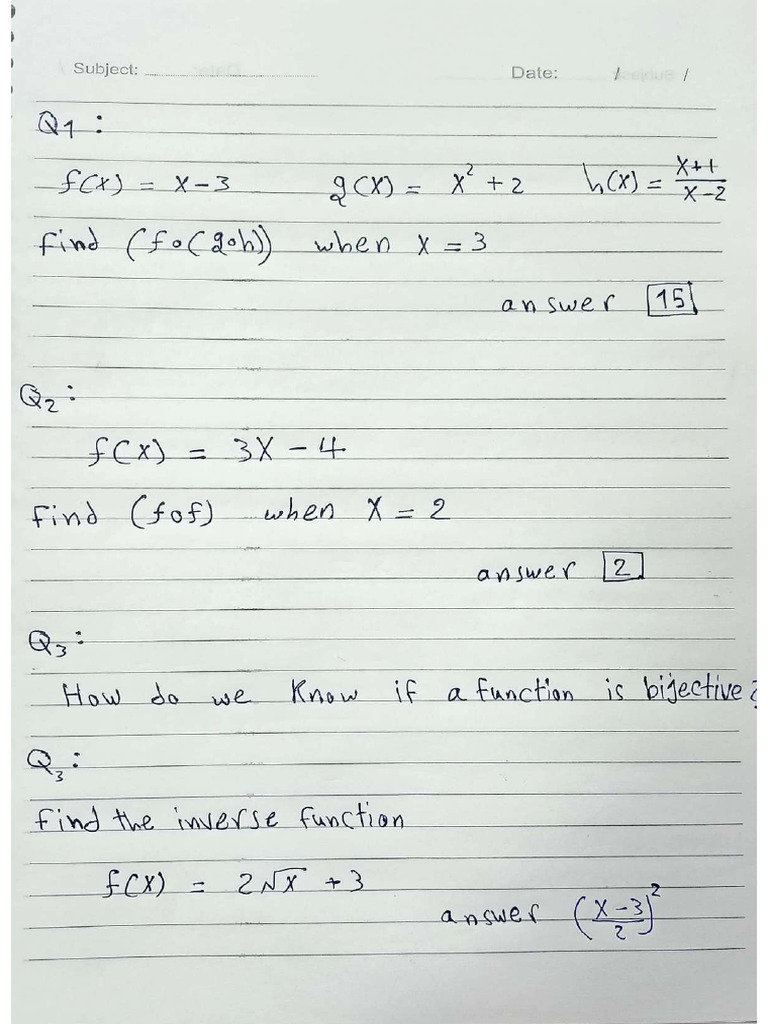 Subject: Date: / /
Q1 :
f(x) = x - 3 g(x) = x² + 2 h(x) = x+1/x-2
find (fo(goh)) when x = 3
answer 15
Q2 :
f(x) = 3x - 4
find (fof) when x = 2
answer 2
Q3 :
How do we know if a function is bijective?
Q3 :
find the inverse function
f(x) = 2√x + 3
answer (x-3/2)²